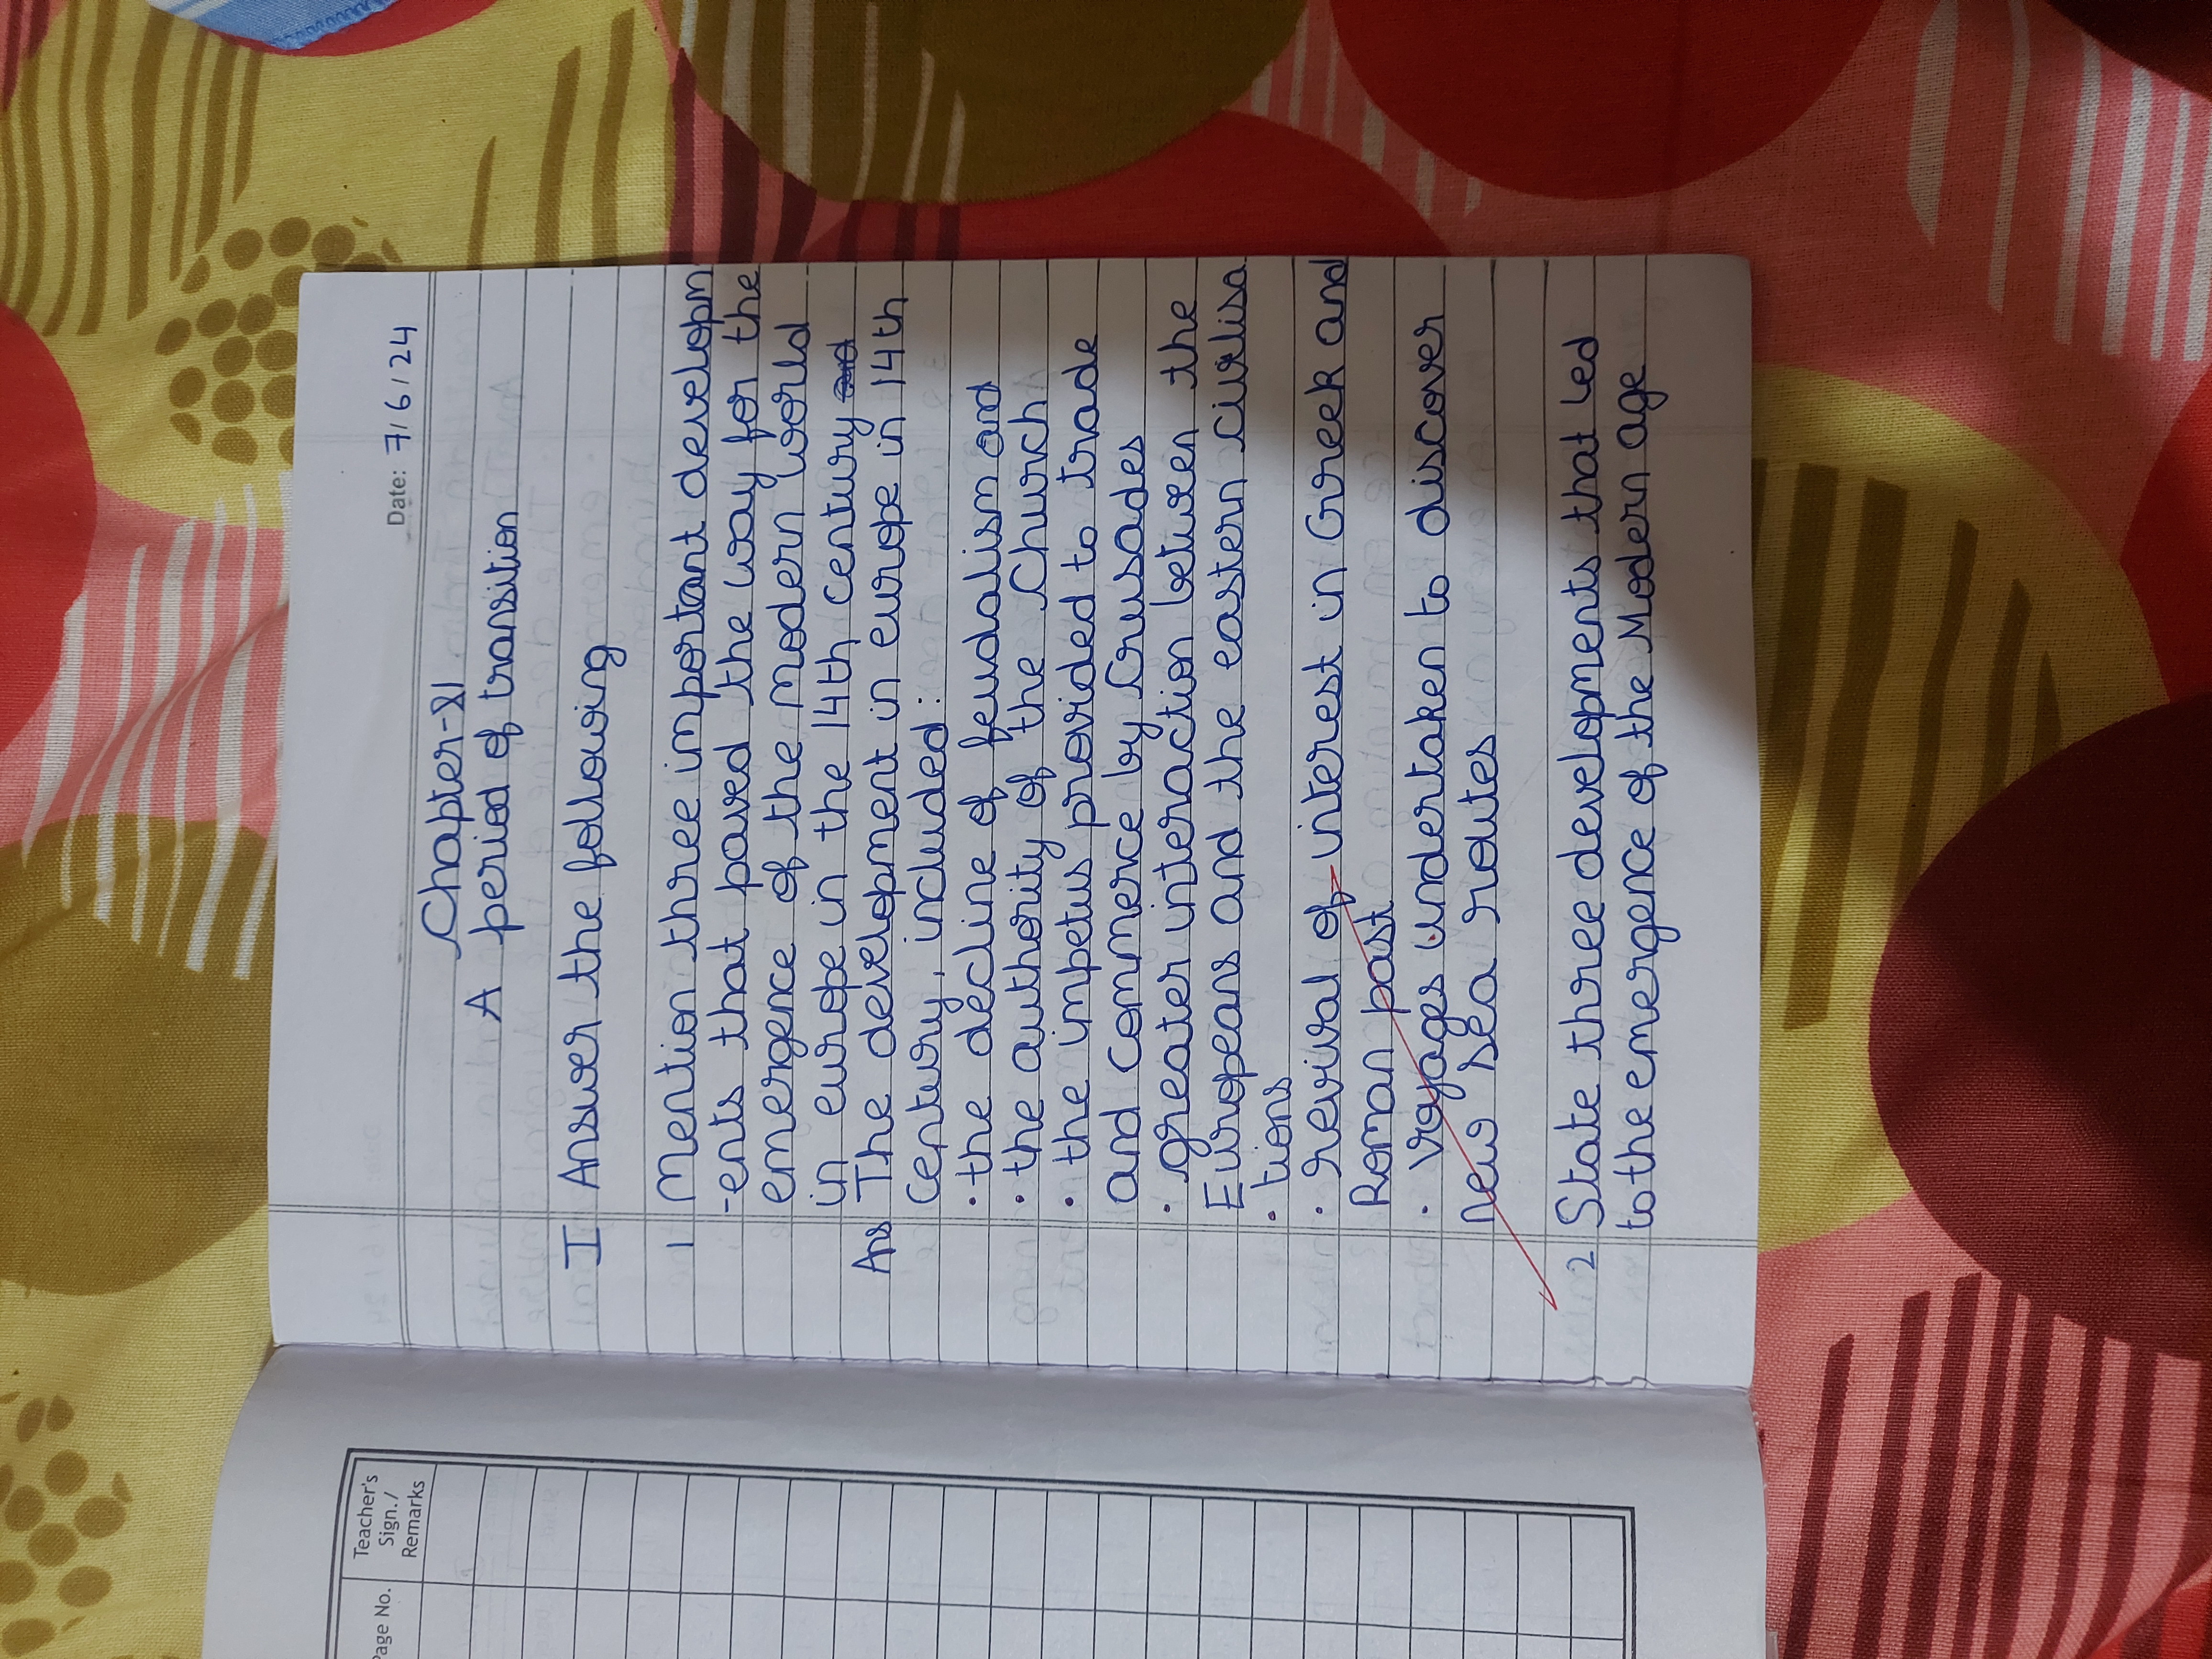 Date: 7/6/24
Chapter-XI
A period of transition
I Answer the following
1 Mention three important developm
-ents that paved the way for the
emergence of the modern world
in europe in the 14th century
Ans The development in europe in 14th
Century, included:
• the decline of feudalism and
• the authority of the Church
• the impetus provided to trade
and commerce by Crusades
• greater interaction between the
Europeans and the eastern civilisa
• tions
• revival of interest in Greek and
Roman past
• voyages undertaken to discover
New sea routes
2 State three developments that led
to the emergence of the Modern age
Page No.
Teacher's
Sign./
Remarks